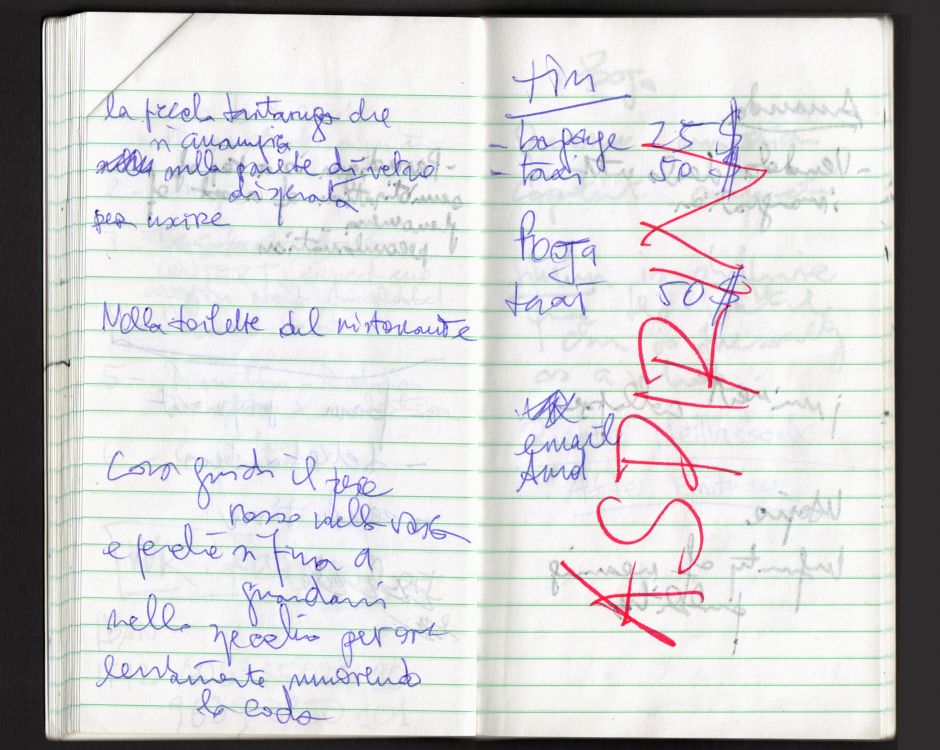 la piccola tartaruga che
si arrampica
sulla parete di vetro
disperata
per uscire
Nella toilette del ristorante
Cosa guarda il pesce
rosso nella vasca
e perché si fissa a
guardarsi
nello specchio per ore
lentamente muovendo
la coda
tim
- bagage 25 $
- taxi 50 $
Pooja
taxi 50 $
email
Amd
ASDRIN